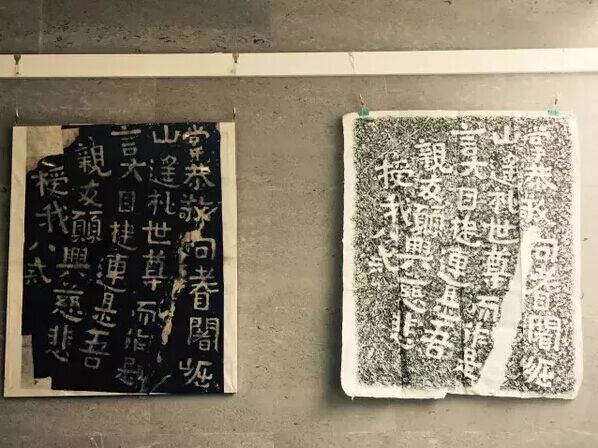 掌恭敬向耆闍崛
山遥礼世尊而作是
言大目揵連是吾
親友願興慈悲
授我八戒
掌恭敬向耆闍崛
山遥礼世尊而作是
言大目揵連是吾
親友願興慈悲
授我八戒